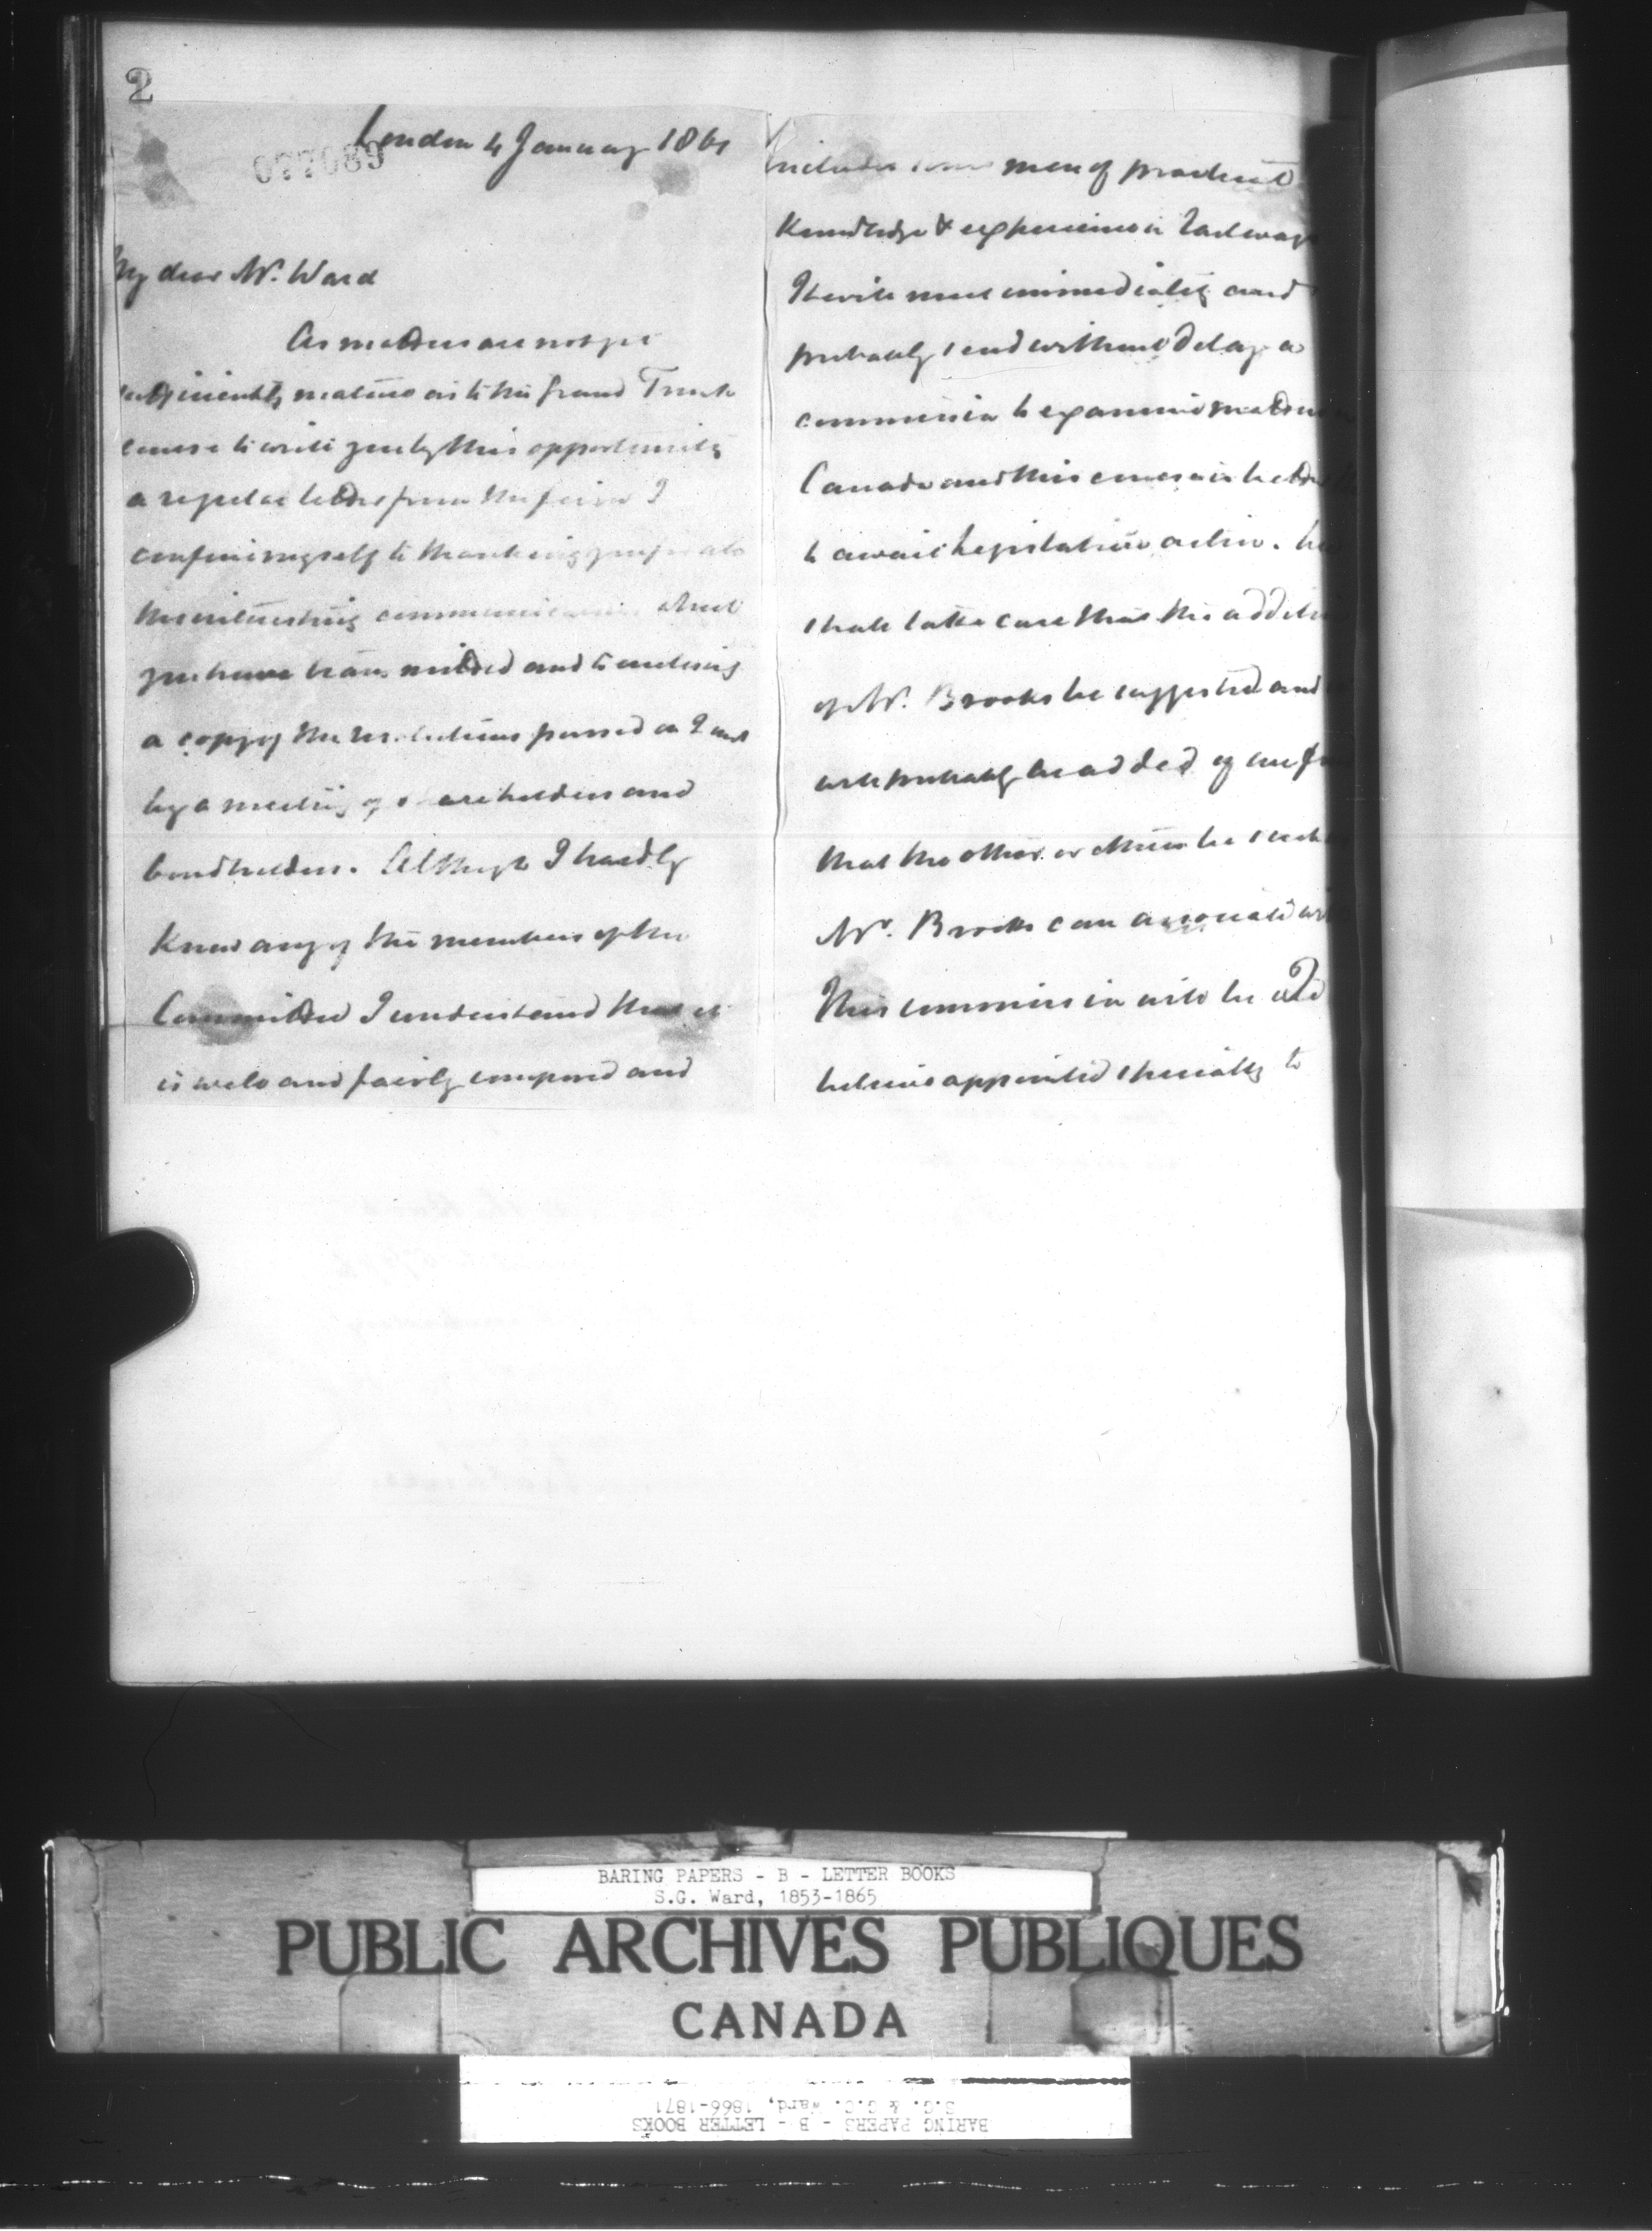 2
077089
London 4 January 1861
My dear Mr. Ward
As matters are not yet
sufficiently mature as to the Grand Trunk
to write you by this opportunity
a regular letter from the firm I
confine myself to thanking you for
the interesting communications which
you have transmitted and to enclosing
a copy of the resolutions passed on 2 inst
by a meeting of shareholders and
bondholders. Although I hardly
know any of the members of the
Committee I understand that it
is well and fairly composed and
includes some men of practical
knowledge & experience in Railways
It will meet immediately and
probably send without delay a
commission to examine matters
Canada and this course is better
to await Legislative action. We
shall take care that the addition
of Mr. Brooks be suggested and
will probably be added if we
that the other or others be such
Mr. Brooks can associate with
This commission will be
believe appointed specially to
BARING PAPERS - B - LETTER BOOKS
S.G. Ward, 1853-1865
PUBLIC ARCHIVES PUBLIQUES
CANADA
BARING PAPERS - B - LETTER BOOKS
S.G. & G.C. Ward, 1866-1871